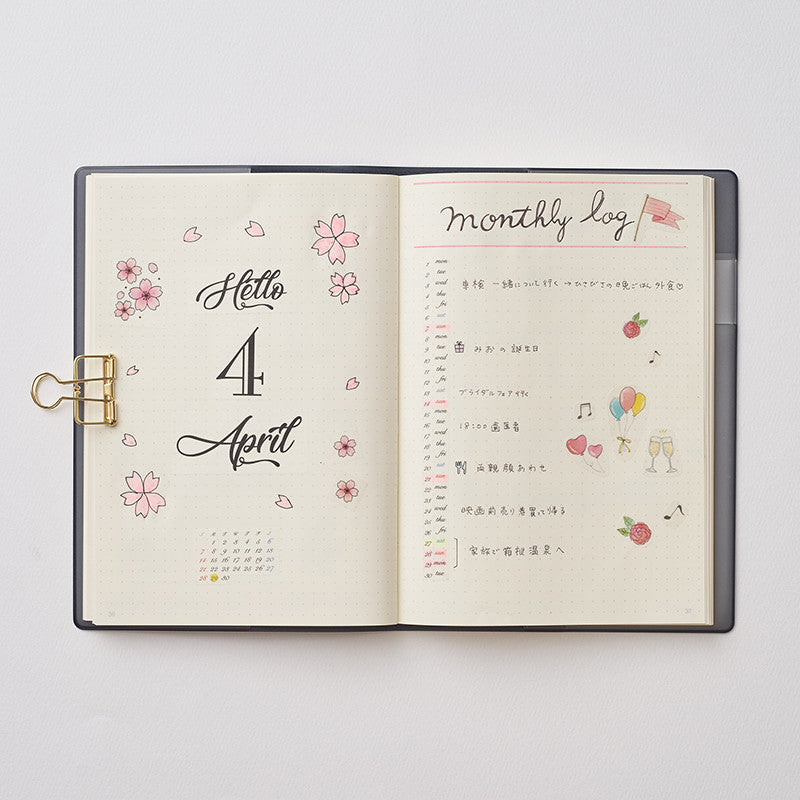 Hello
4
April
S M T W T F S
1 2 3 4 5 6
7 8 9 10 11 12 13
14 15 16 17 18 19 20
21 22 23 24 25 26 27
28 29 30
36
monthly log
1 mon
2 tue
3 wed 車検 一緒について行く → ひさびさの晩ごはん外食♡
4 thu
5 fri
6 sat
7 sun
8 mon
9 tue みおの誕生日
10 wed
11 thu
12 fri
13 sat ブライダルフェア行く
14 sun
15 mon
16 tue 18:00 歯医者
17 wed
18 thu
19 fri
20 sat 両親顔あわせ
21 sun
22 mon
23 tue
24 wed 映画前売り券買って帰る
25 thu
26 fri
27 sat
28 sun 家族で箱根温泉へ
29 mon
30 tue
37